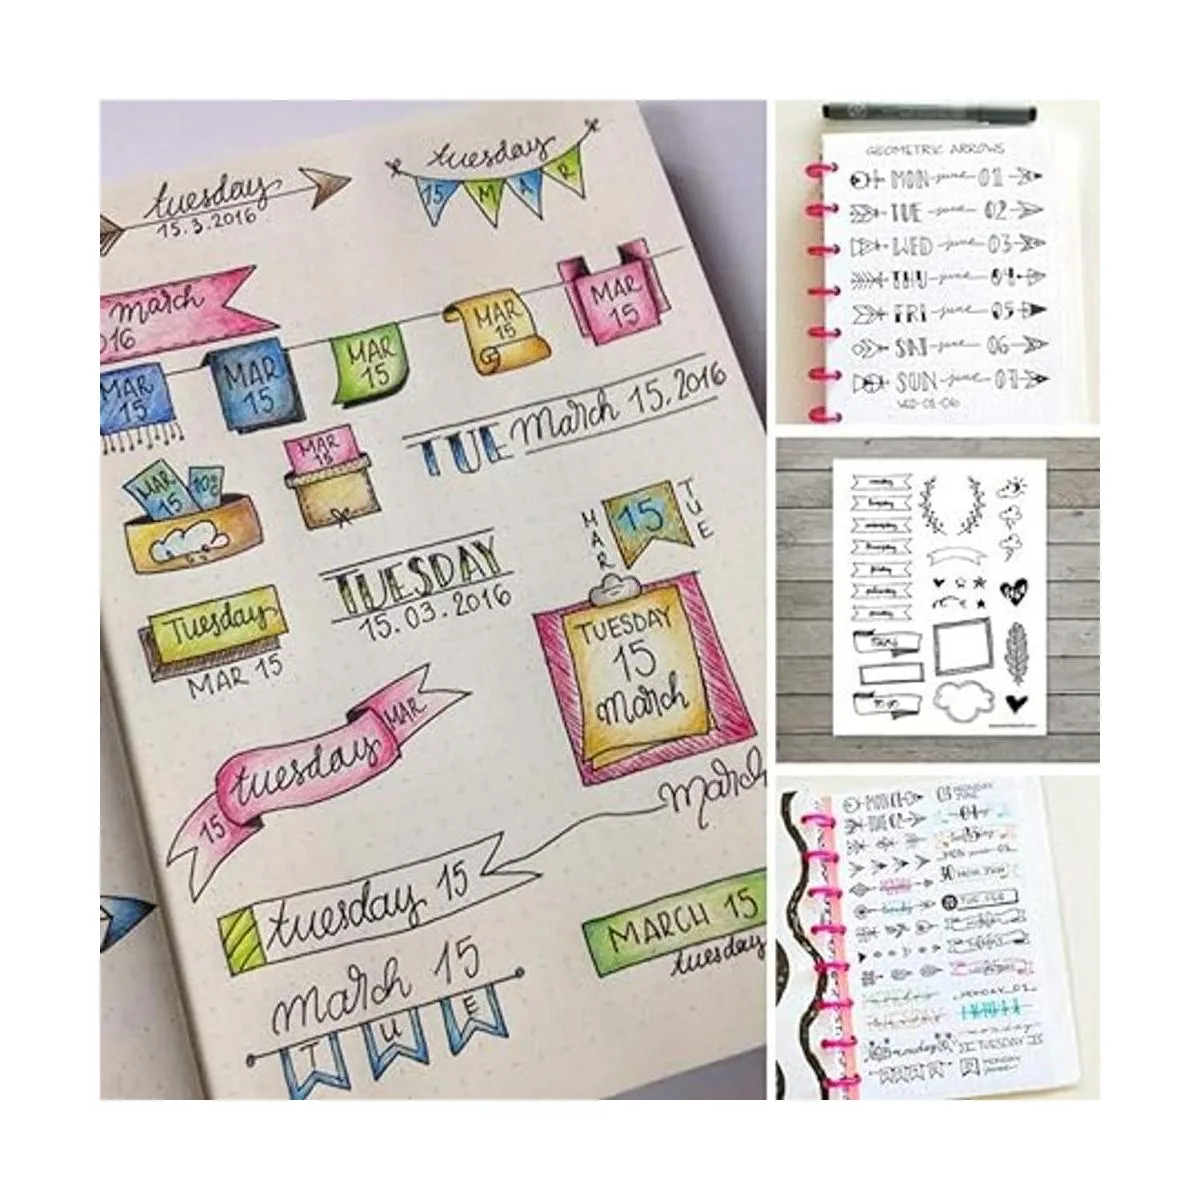 tuesday
15.3.2016
tuesday
15 M A R
march
016
MAR
15
MAR
15
MAR
15
MAR
15
MAR
15
MAR
15
MAR
15
TUE March 15, 2016
MAR
15
TUE
TUESDAY
15.03.2016
Tuesday
MAR 15
TUESDAY
15
March
15 tuesday MAR
March
tuesday 15
MARCH 15
tuesday
march 15
T U E
GEOMETRIC ARROWS
MON june 01
TUE june 02
WED june 03
THU june 04
FRI june 05
SAT june 06
SUN june 07
monday
tuesday
wednesday
thursday
friday
saturday
sunday
TO DO
MON 01
TUE 02
03 MONDAY
JUNE
TUE FEB
MONDAY_01
monday
TUESDAY
monday
MONDAY